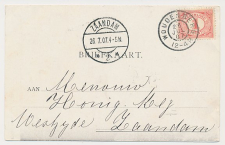 ZAANDAM
26.7.07.4-5N.
BRIEFKAART.
AAN Mevrouw
Honig Meij
Westzyde Zaandam